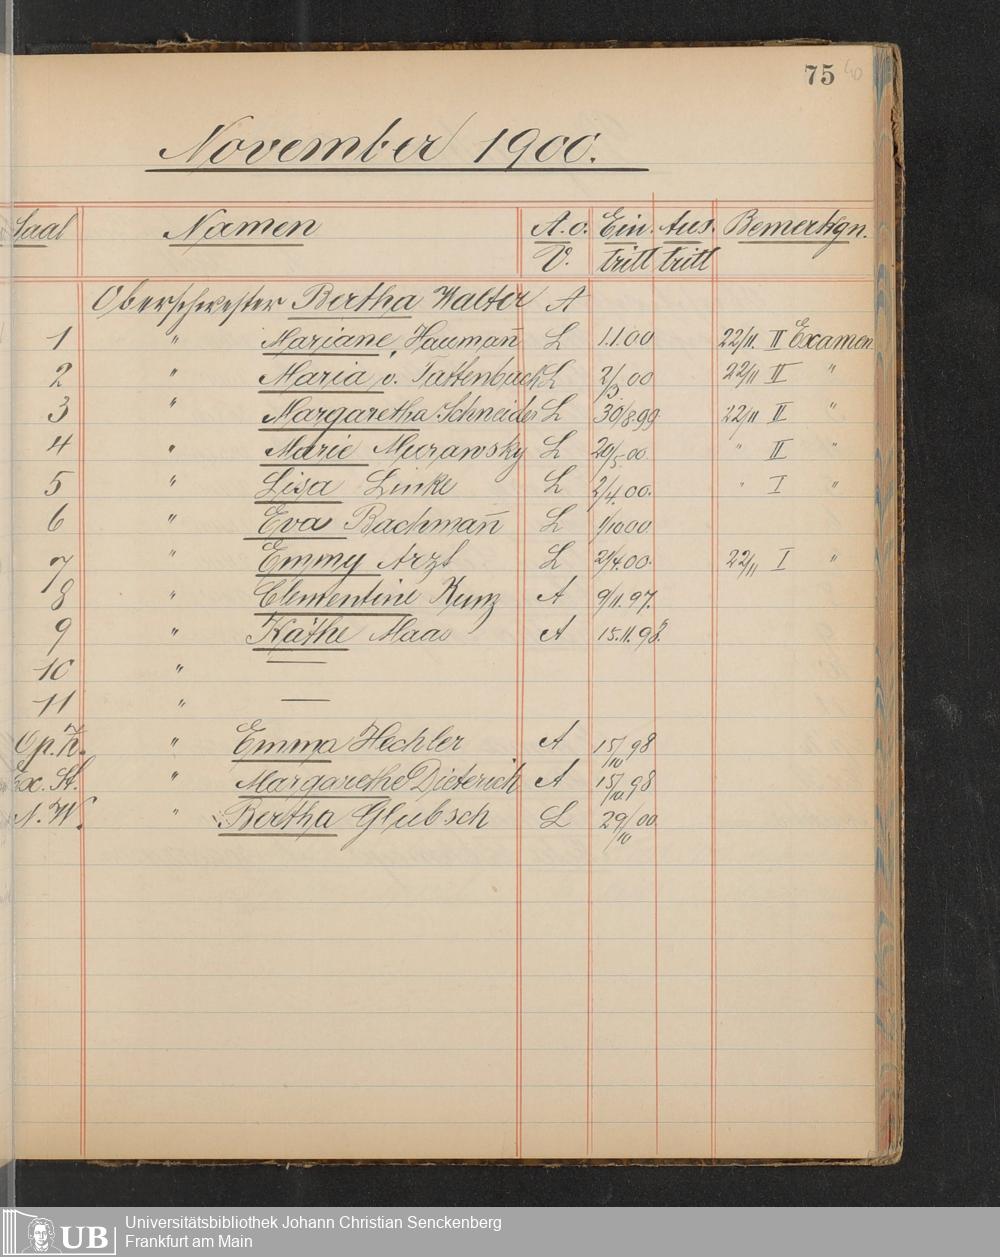 75 40
November 1900.
Saal Namen A.o. Ein. Aus. Bemerkgn.
V. tritt tritt
Oberschwester Bertha Walter A
1 " Mariane, Haumañ L 1.1.00 22/11. II Examen
2 " Maria v. Tattenbach L 2/3.00 22/11 II "
3 " Margaretha Schneider L 30/8.99. 22/11 II "
4 " Marie Muransky L 20/5.00. " II "
5 " Lisa Linke L 2/4.00. " I "
6 " Eva Bachmañ L 1/10 00
7 " Emmy Arzt L 21/4.00. 22/11 I "
8 " Clementine Kunz A 9/11.97.
9 " Käthe Maas A 15.11.98.
10 " —
11 " —
Op. Z. " Emma Hechler A 15/10 98
Ex. St. " Margarethe Dieterich A 15/10 98
N.W. " Bertha Glubsch L 29/10 00
UB Universitätsbibliothek Johann Christian Senckenberg
Frankfurt am Main